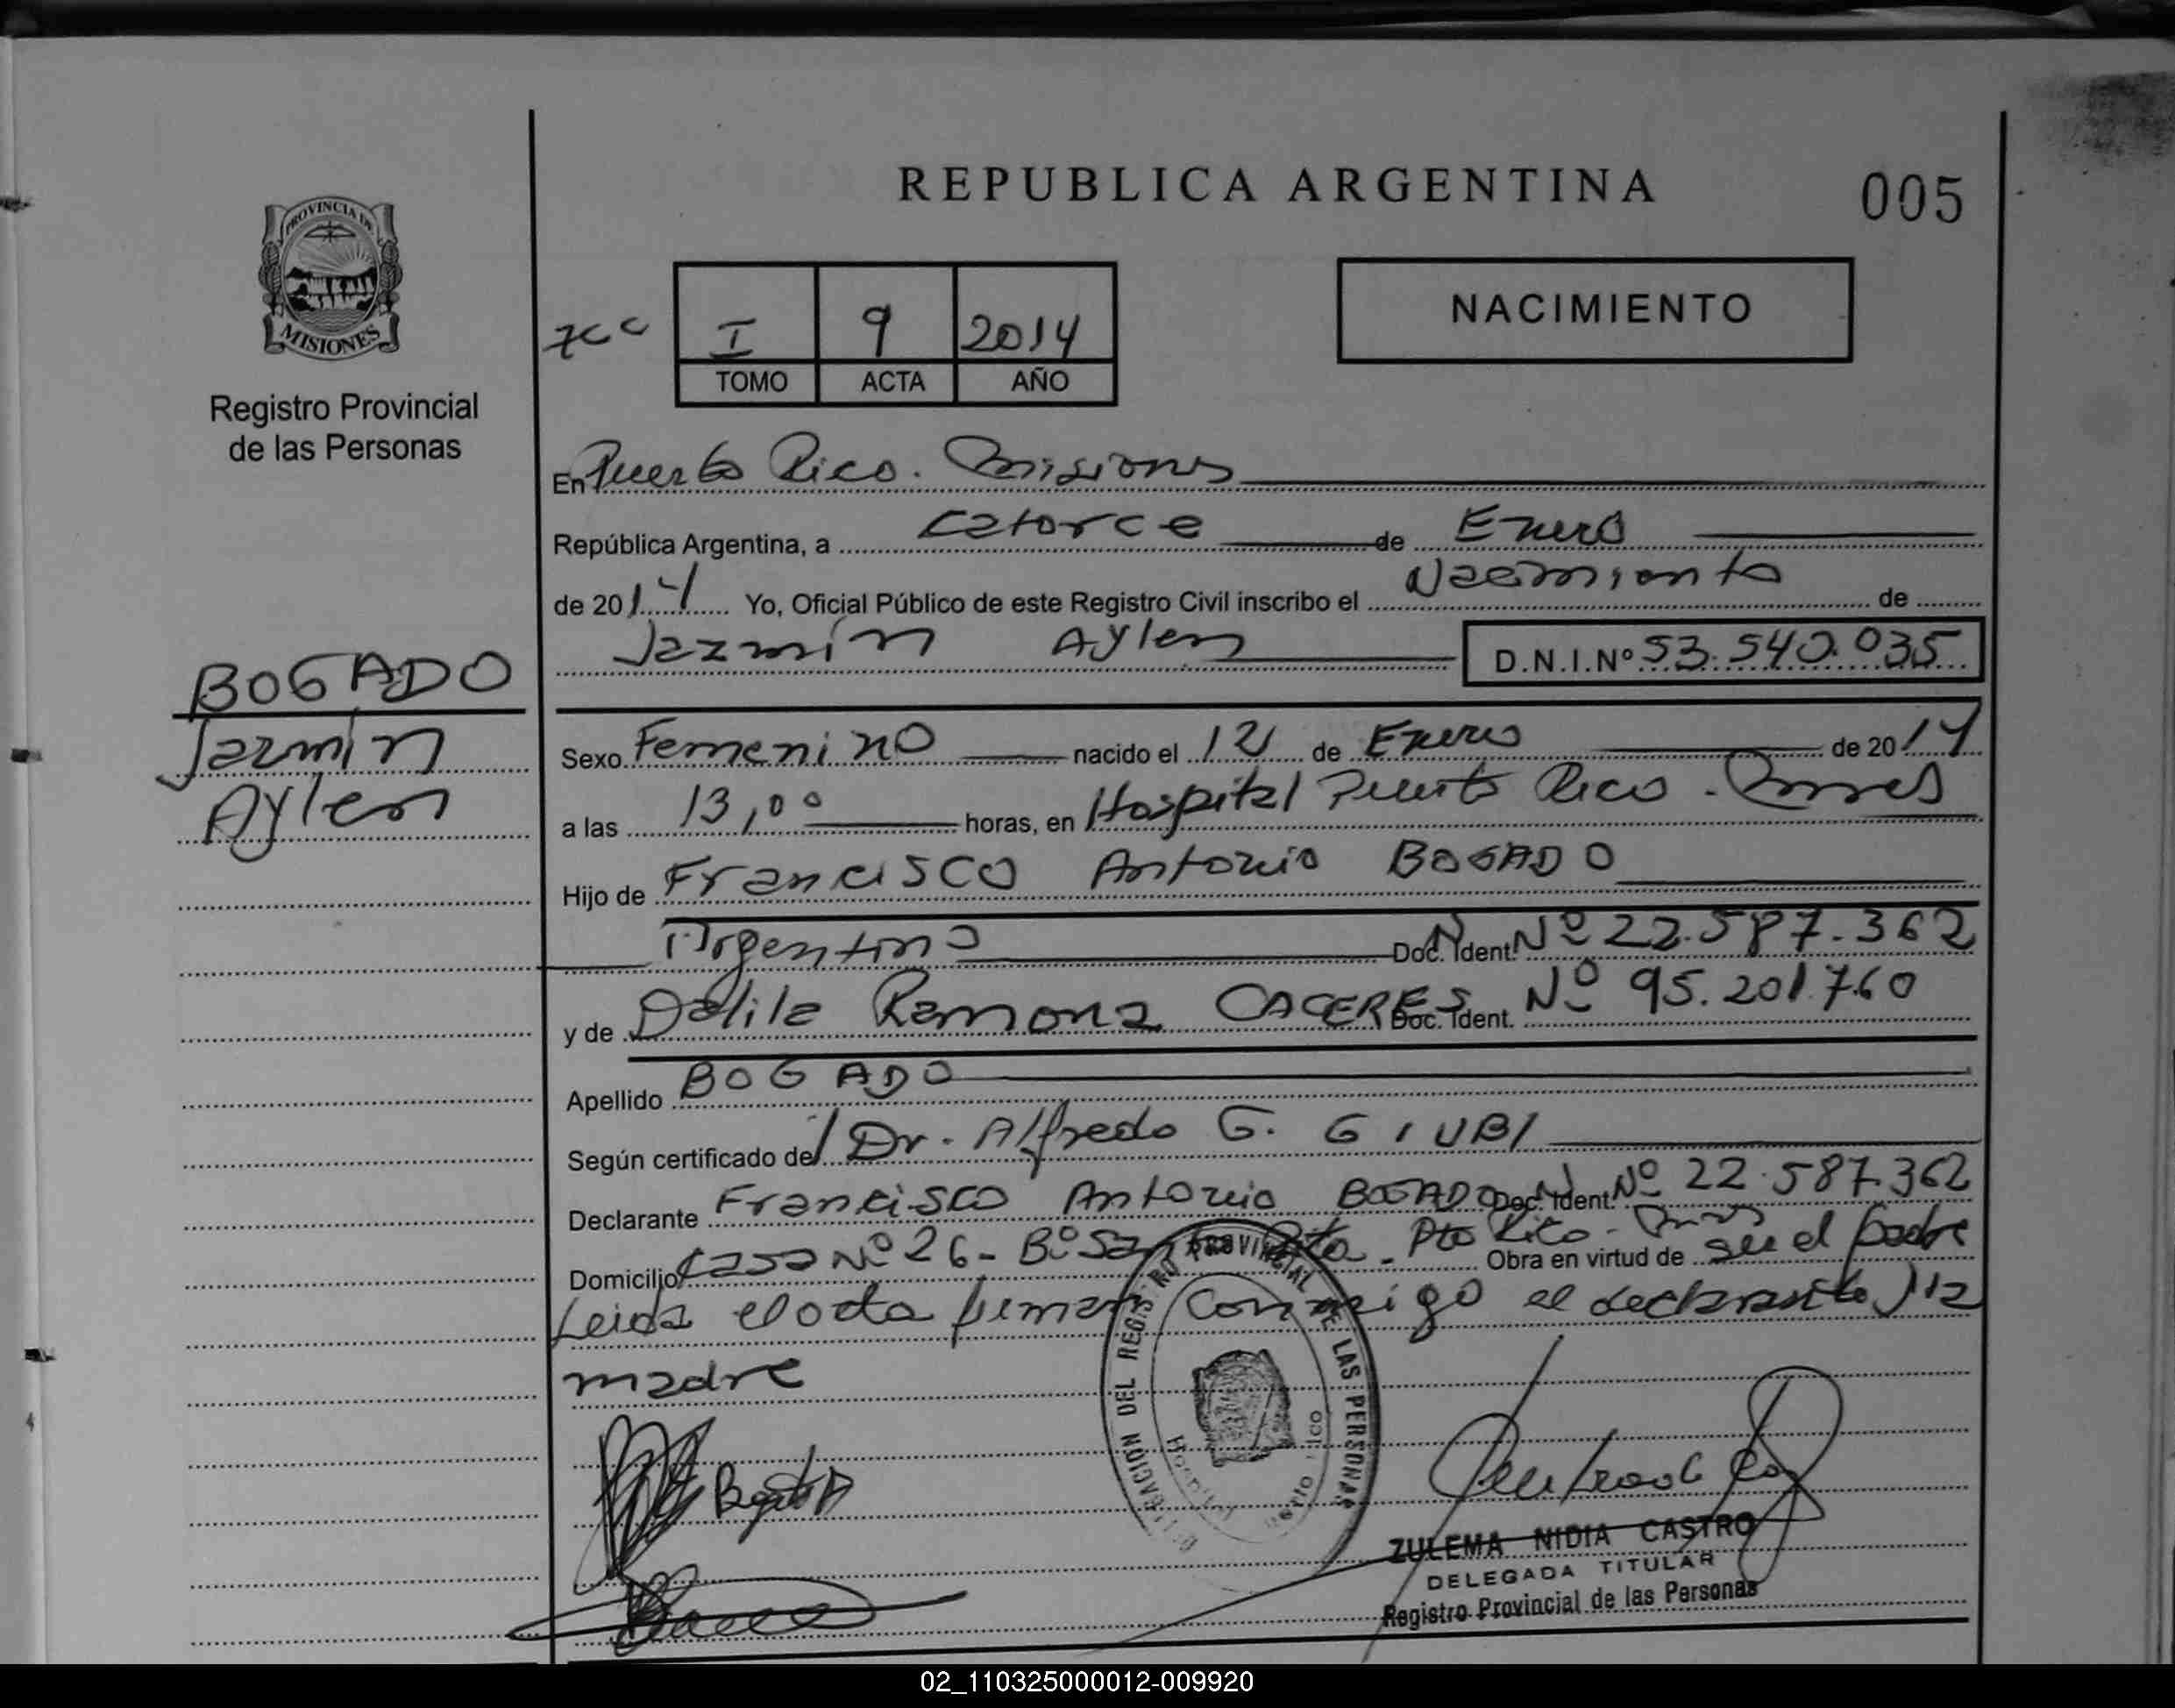 REPUBLICA ARGENTINA
005
PROVINCIA DE
MISIONES
Registro Provincial
de las Personas
I 9 2014
TOMO ACTA AÑO
NACIMIENTO
En Puerto Rico. Misiones
República Argentina, a catorce de Enero
de 2014 Yo, Oficial Público de este Registro Civil inscribo el Nacimiento de
Jazmín Aylen D.N.I.Nº 53.540.035
BOGADO
Jazmín
Aylen
Sexo Femenino nacido el 12 de Enero de 2014
a las 13,00 horas, en Hospital Puerto Rico. Mnes
Hijo de Francisco Antonio BOGADO
Argentino Doc. Ident. Nº 22.587.362
y de Dalila Ramona CACERES Doc. Ident. Nº 95.201.760
Apellido BOGADO
Según certificado del Dr. Alfredo G. GIUBI
Declarante Francisco Antonio BOGADO Doc. Ident. Nº 22.587.362
Domicilio Casa Nº 26 - Bº Santa Rita - Pto Rico - Mnes Obra en virtud de ser el padre
Leida el acta firman conmigo el declarante y la
madre
DEL REGISTRO PROVINCIAL DE LAS PERSONAS
Hospital Puerto Rico
ZULEMA NIDIA CASTRO
DELEGADA TITULAR
Registro Provincial de las Personas
02_110325000012-009920